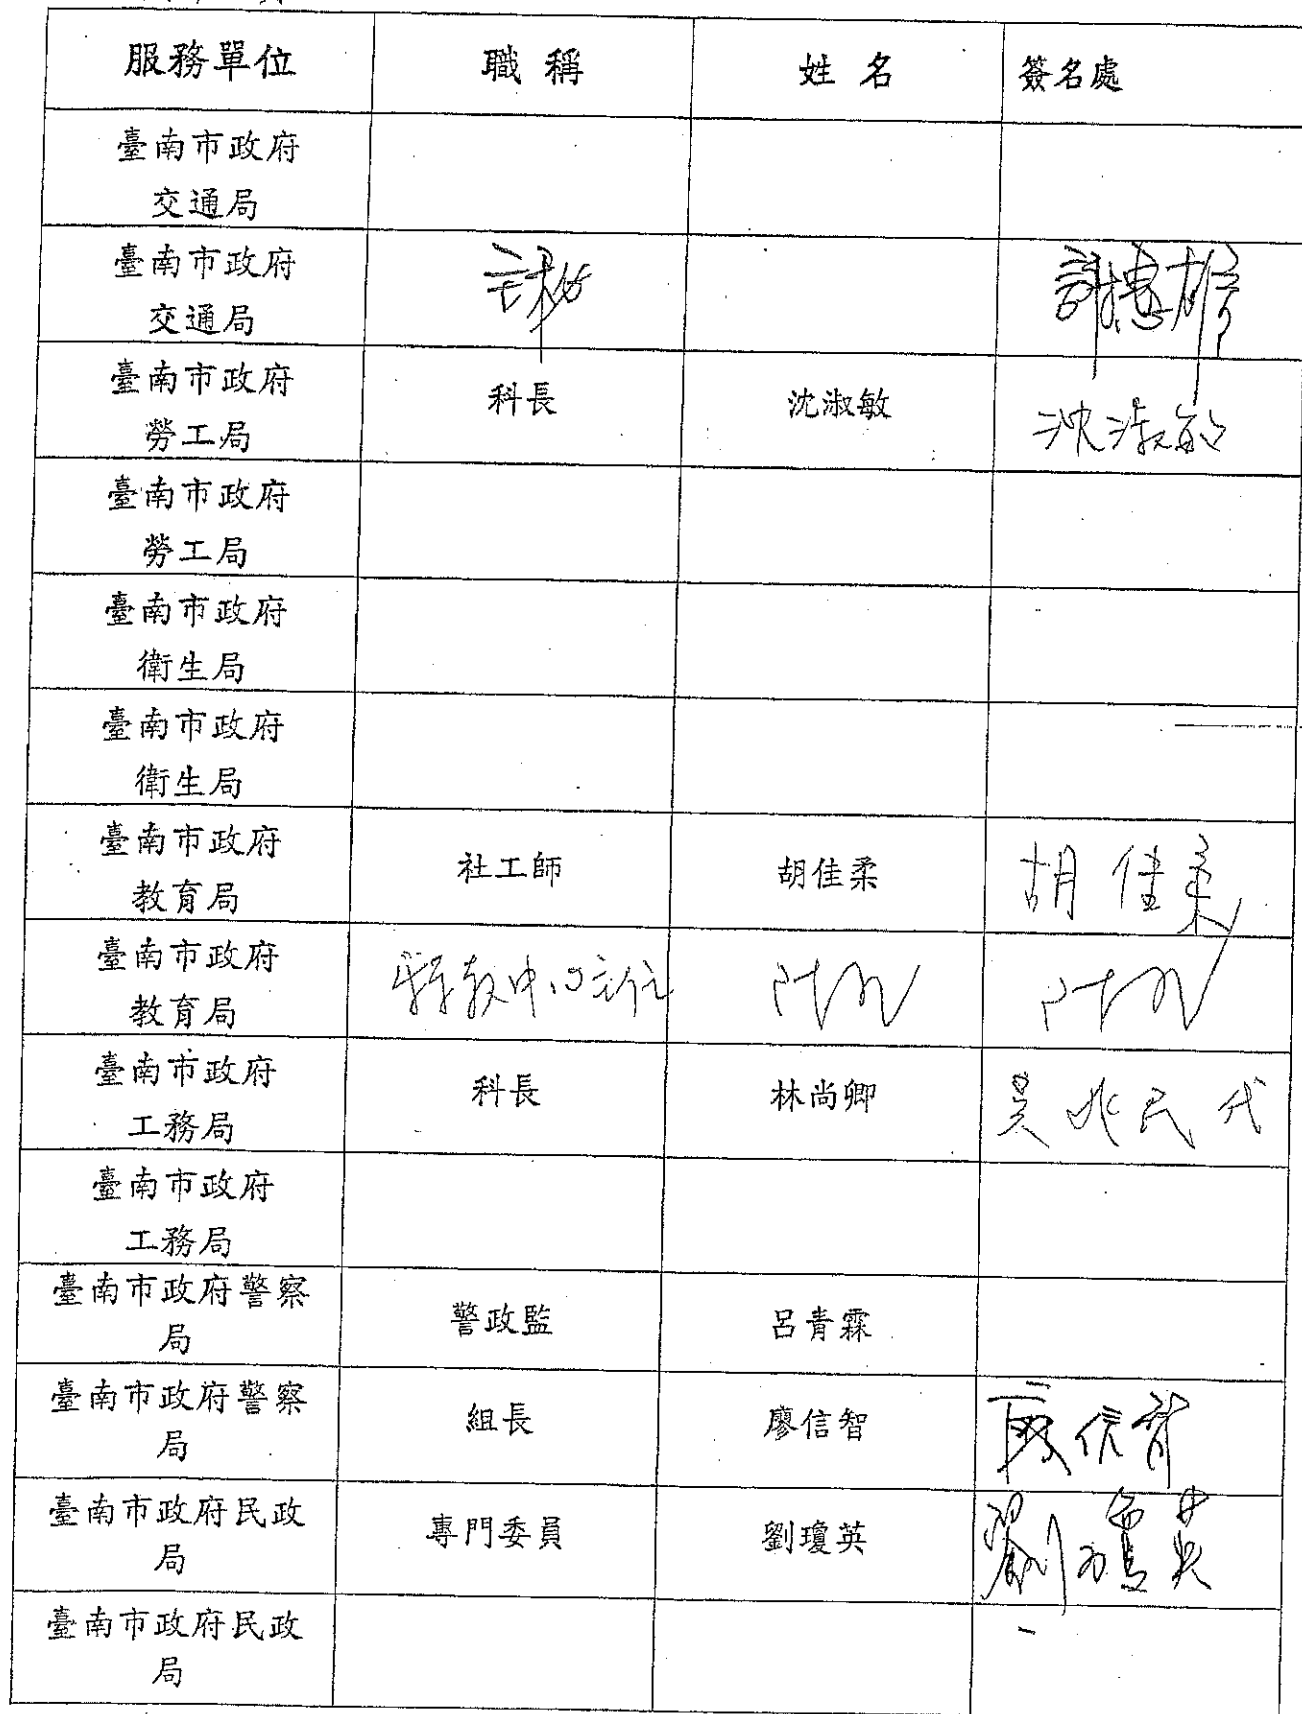 服務單位 職稱 姓名 簽名處
臺南市政府
交通局
臺南市政府
交通局
主秘
臺南市政府
勞工局
科長 沈淑敏 沈淑敏
臺南市政府
勞工局
臺南市政府
衛生局
臺南市政府
衛生局
臺南市政府
教育局
社工師 胡佳柔 胡佳柔
臺南市政府
教育局
臺南市政府
工務局
科長 林尚卿 吳兆民代
臺南市政府
工務局
臺南市政府警察
局
警政監 呂青霖
臺南市政府警察
局
組長 廖信智 廖信智
臺南市政府民政
局
專門委員 劉瓊英 劉瓊英
臺南市政府民政
局